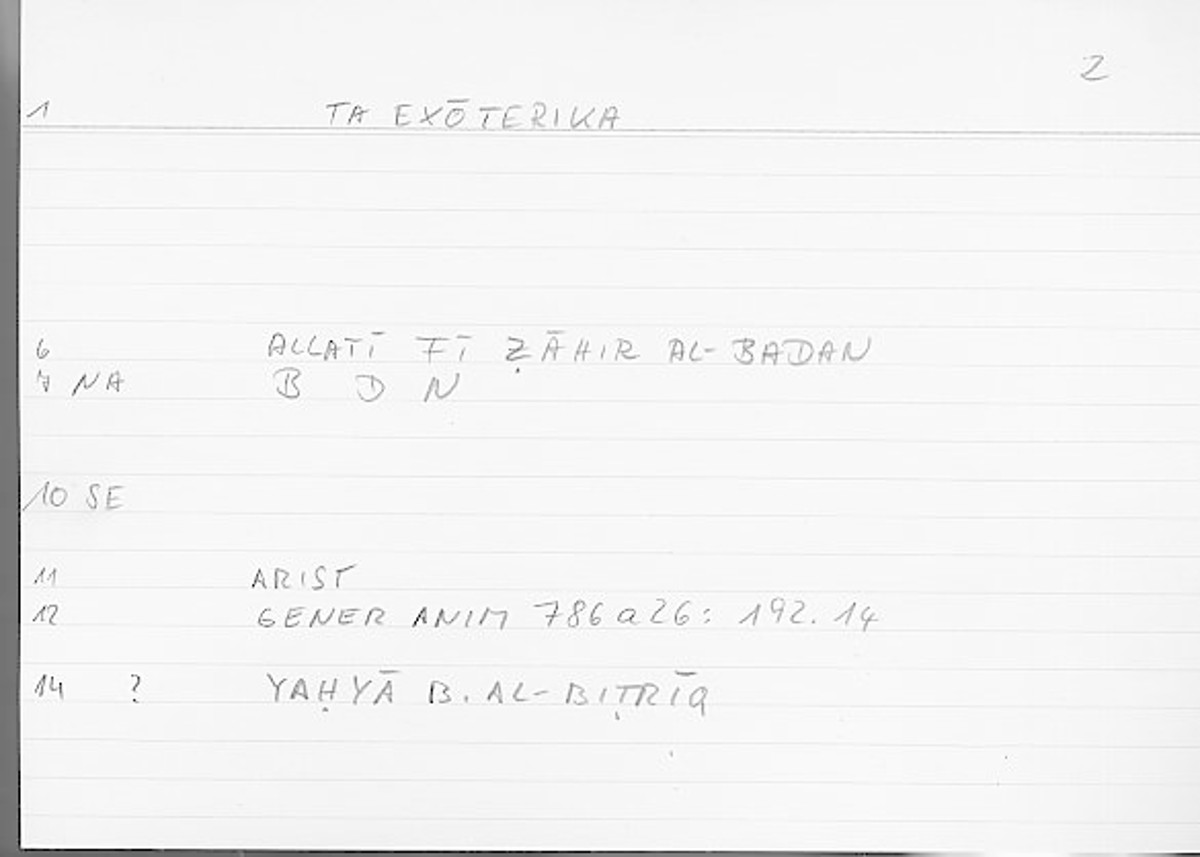 2
1 TA EXŌTERIKA
6 ALLATĪ FĪ ẒĀHIR AL-BADAN
7 NA B D N
10 SE
11 ARIST
12 GENER ANIM 786a26: 192.14
14 ? YAḤYĀ B. AL-BIṬRĪQ